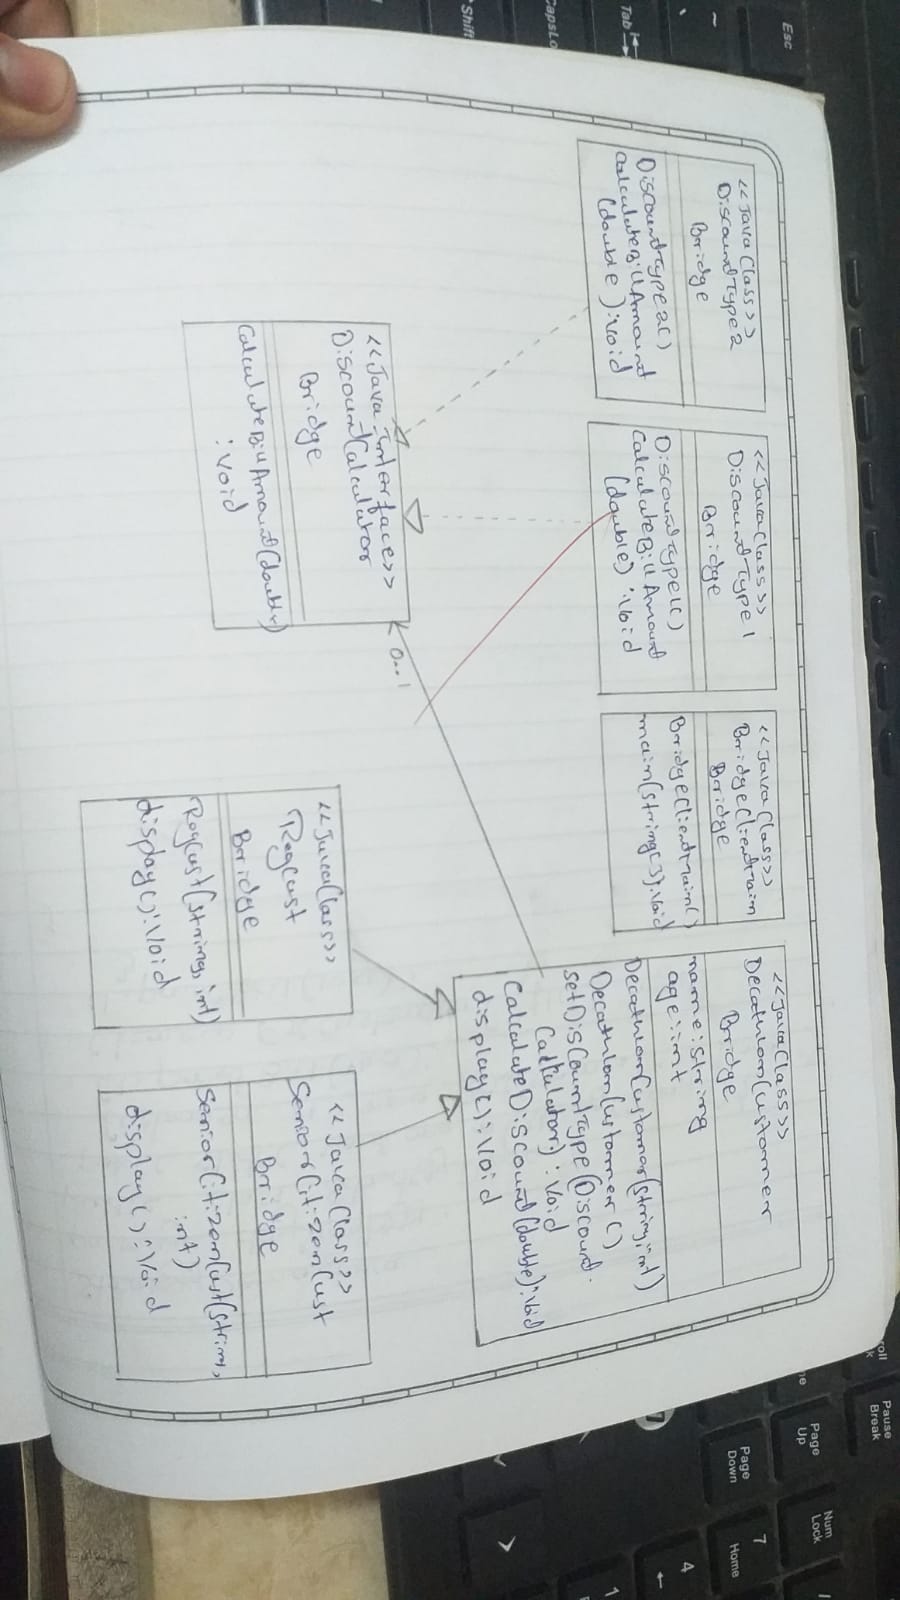 <<JavaClass>>
DiscountType2
Bridge
DiscountType2()
CalculateBillAmount
(double):Void
<<JavaClass>>
DiscountType1
Bridge
DiscountType1()
CalculateBillAmount
(double):Void
<<JavaClass>>
BridgeClientMain
Bridge
BridgeClientMain()
main(String[]):Void
<<JavaClass>>
DecathlonCustomer
Bridge
name:String
age:int
DecathlonCustomer(String,int)
DecathlonCustomer()
setDisCountType(Discount
Calculator):Void
CalculateDiscount(double):Void
display():Void
0..1
<<Java Interface>>
DiscountCalculator
Bridge
CalculateBillAmount(double)
:Void
<<JavaClass>>
RegCust
Bridge
RegCust(String, int)
display():Void
<<JavaClass>>
SeniorCitizenCust
Bridge
SeniorCitizenCust(String,
int)
display():Void
Esc
Tab
CapsLo
Shift
Pause
Break
Page
Up
Num
Lock
Page
Down
7
Home
4
1